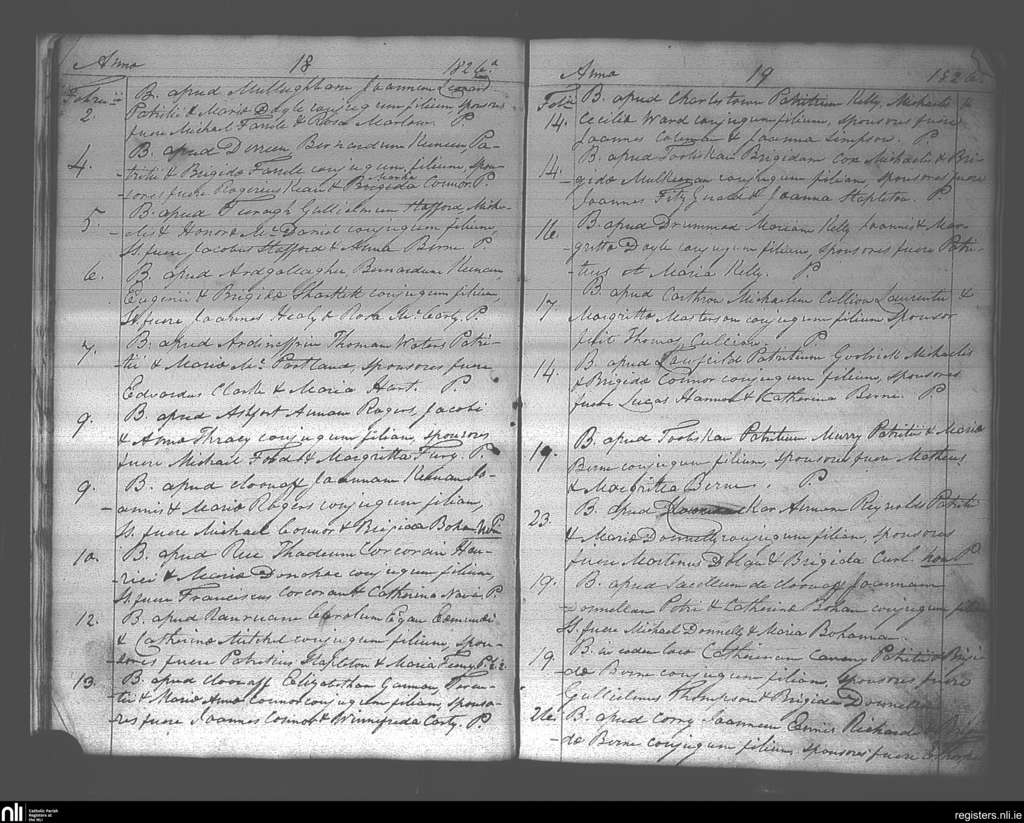 Anno 18 1826.a
Febru-ii B. apud Mullughbam Joannem Leonard
2. Patritii & Maria Doyle conjugum filium, sponsores
fuere Michael Farele & Rosa Marlow. P.
B. apud Doreen Bernardum Keenan Pa-
4. tritii & Brigida Farele conjugum, filium, spon-
sores fuere Rogerius Kean & Brigida Connor P.
B. apud Gullielmum Stafford Micha-
5. elis & Honora McDaniel conjugum filium,
SS. fuere Jacobus Stafford & Anna Berne. P.
6. B. apud Ardgallagher Bernardum Keenan
Eugenii & Brigida conjugum filium,
SS. fuere Joannes Healy & Rosa McCarty. P.
7. B. apud Thomam Waters Patri-
tii & Maria McPortland, sponsores fuere
Edvardus Clark & Maria Hart. P.
9. B. apud Ashfort Annam Rogers, Jacobi
& Anna Thracy conjugum filiam, sponsores
fuere Michael & Margritta P.
9. B. apud cloonaff Joannam Keenan Jo-
annis & Maria Rogers conjugum filiam,
SS. fuere Michael Connor & Brigida Bohan Non P.
10. B. apud Rue Thadeum Corcoran Hen-
rici & Maria Donohoe conjugum filium,
SS. fuere Franciscus Corcoran & Catherina P.
12. B. apud Carolum Egan Edmundi
& Catherina Mitchel conjugum filium, spon-
sores fuere Patritius Stapleton & Maria P.
13. B. apud cloonaff Elizabetham Gannon Teren-
tii & Maria Anna Connor conjugum filiam, sponso-
res fuere Joannes Connor & Winnefreda Carty. P.
Anno 19 1826.
Feb: B. apud Charlstown Patritium Kelly, Michaelis &
14. Cecilia Ward conjugum filium, sponsores fuere
Joannes Coleman & Joanna Simpson. P.
B. apud Brigidam Cox Michaelis & Bri-
14. gida conjugum filiam, sponsores fuere
Joannes FitzGerald & Joanna Stapleton. P.
16. B. apud Drummad Mariam Kelly Joannis & Mar-
gritta Doyle conjugum filiam, sponsores fuere Patri-
tius et Maria Kelly. P.
B. apud Michaelem Laurentii &
17. Margritta Masterson conjugum filium, sponsor
fuit Thomas P.
14. B. apud Patritium Michaelis
& Brigida Connor conjugum filium, sponsores
fuere Lucas Hannon & Katherina Berne. P.
19. B. apud Patritium Murry Patritii & Maria
Berne conjugum filium, sponsores fuere Matheus
& Margritta Berne. P.
B. apud Annam Reynolds Patritii
23. & Maria Donnelly conjugum filiam, sponsores
fuere Martinus Dolan & Brigida non P.
19. B. apud Sacellum de cloonaff Joannam
Petri & Catherina Bohan conjugum filiam
SS. fuere Michael Donnelly & Maria Bohanna.
19. B. in eodem loco Catherinam Patritii & Brigi-
da Berne conjugum filiam, sponsores fuere
Gullielmus Thompson & Brigida
26. B. apud Corry Joannem Ennis Richardi & Brigi-
da Berne conjugum filium, sponsores fuere
nli Catholic Parish
Registers at
the NLI
registers.nli.ie